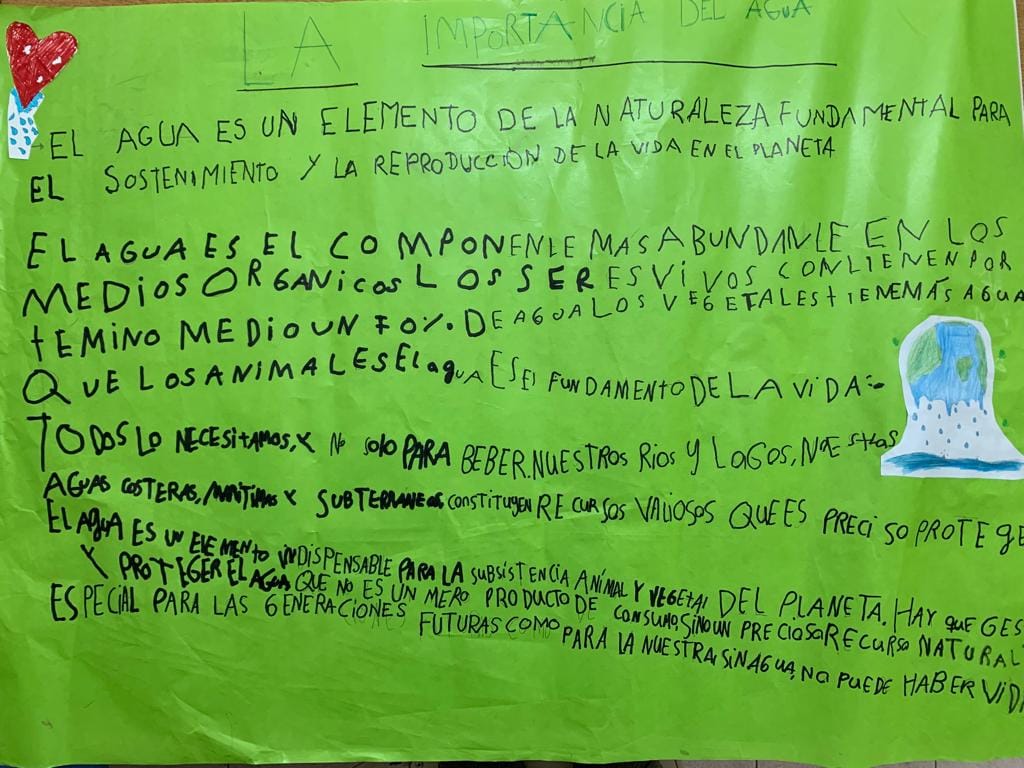 LA IMPORTANCIA DEL AGUA
EL AGUA ES UN ELEMENTO DE LA NATURALEZA FUNDAMENTAL PARA
EL SOSTENIMIENTO Y LA REPRODUCCIÓN DE LA VIDA EN EL PLANETA
EL AGUA ES EL COMPONENLE MAS ABUNDANLE EN LOS
MEDIOS ORGANICOS LOS SERES VIVOS CONLIENEN POR
tEMINO MEDIO UN 70%. DE AGUA LOS VEGETALES TIENEMÁS AGUA
QUE LOS ANIMALES El agUA ES El FUNDAMENTO DE LA VIDA:-
TODOS LO NECESITAMOS, Y No solo PARA BEBER. NUESTROS RIOS Y LAGOS,
AGUAS COSTERAS, Y SUBTERRANEAS constituyen RECURSOS VALIOSOS QUE ES PRECISO PROTEGE
El AgUA ES UN ElEMENTO INDISPENSABLE PARA LA SUBSISTENCIA ANIMAL Y VEGETAl DEL PLANETA. HAY QUE GES
Y PROTEGER EL AGUA QUE NO ES UN MERO PRODUCTO DE CONSUMO, SINO UN PRECIOSO RECURSO NATURAL
ESPECIAL PARA LAS GENERACIONES FUTURAS COMO PARA LA NUESTRA. SIN AGUA, NO PUEDE HABER VID